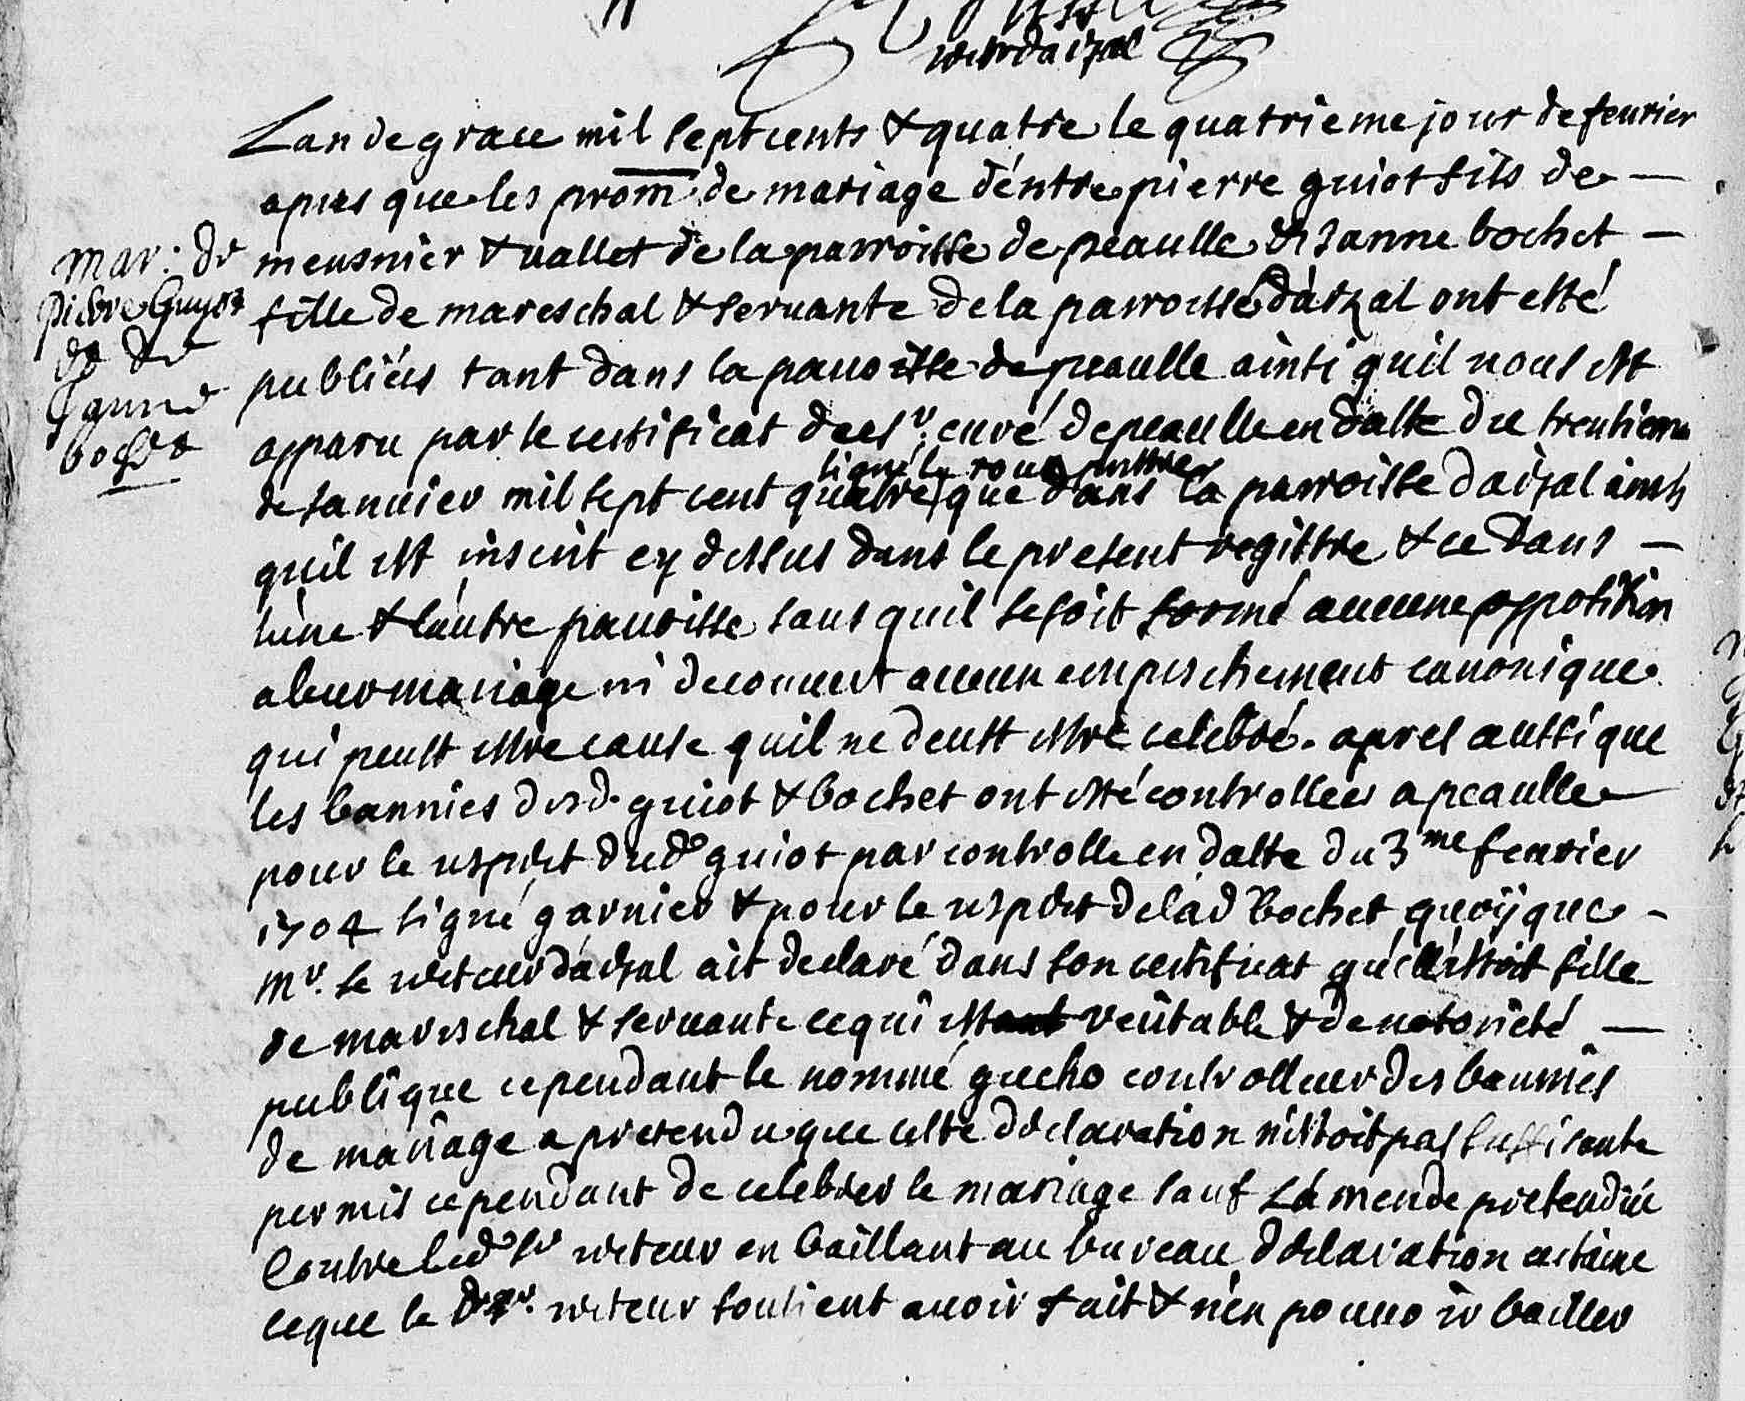 Lan de grace mil sept cents & quatre le quatrieme jour de feurier
apres que les prom de mariage d'éntre pierre guiot fils de
meusnier & uallet de la parroisse de peaulle & Janne bochet
fille de mareschal & seruante de la parroisse d'arzal ont esté
publiées tant dans la parroisse de peaulle ainsi quil nous est
apparu par le certificat du sr. curé de peaulle en datte du trentieme
signé le roux prestre
de januier mil sept cent quatre que dans la parroisse darzal ainsi
quil est inscrit cy dessus dans le present registre & ce dans
lune & lautre parroisse sans quil se soit formé aucune opposition
a leur mariage ni decouuert aucun empeschement canonique
qui peust estre cause quil ne deust estre celebré. apres aussi que
les bannies desd. guiot & bochet ont esté controllees a peaulle
pour le respect dud guiot par controlle en datte du 3me feurier
1704 signé garnier & pour le respect de lad Bochet quoÿque
Mr. le recteur dárzal ait declaré dans son certificat quélle estoit fille
de mareschal & seruante ce qui est veritable & de notorieté
publique cependant le nommé guého controlleur des bannies
de mariage a pretendu que cette declaration nestoit pas suffisante
permis cependant de celebrer le mariage sauf Lámende pretendüe
Contre led sr recteur en baillant au bureau declaration certaine
ce que le sr. recteur soutient auoir fait & nén pouuoir bailler
mar: de
pierre Guyot
& de
Janne
bochet